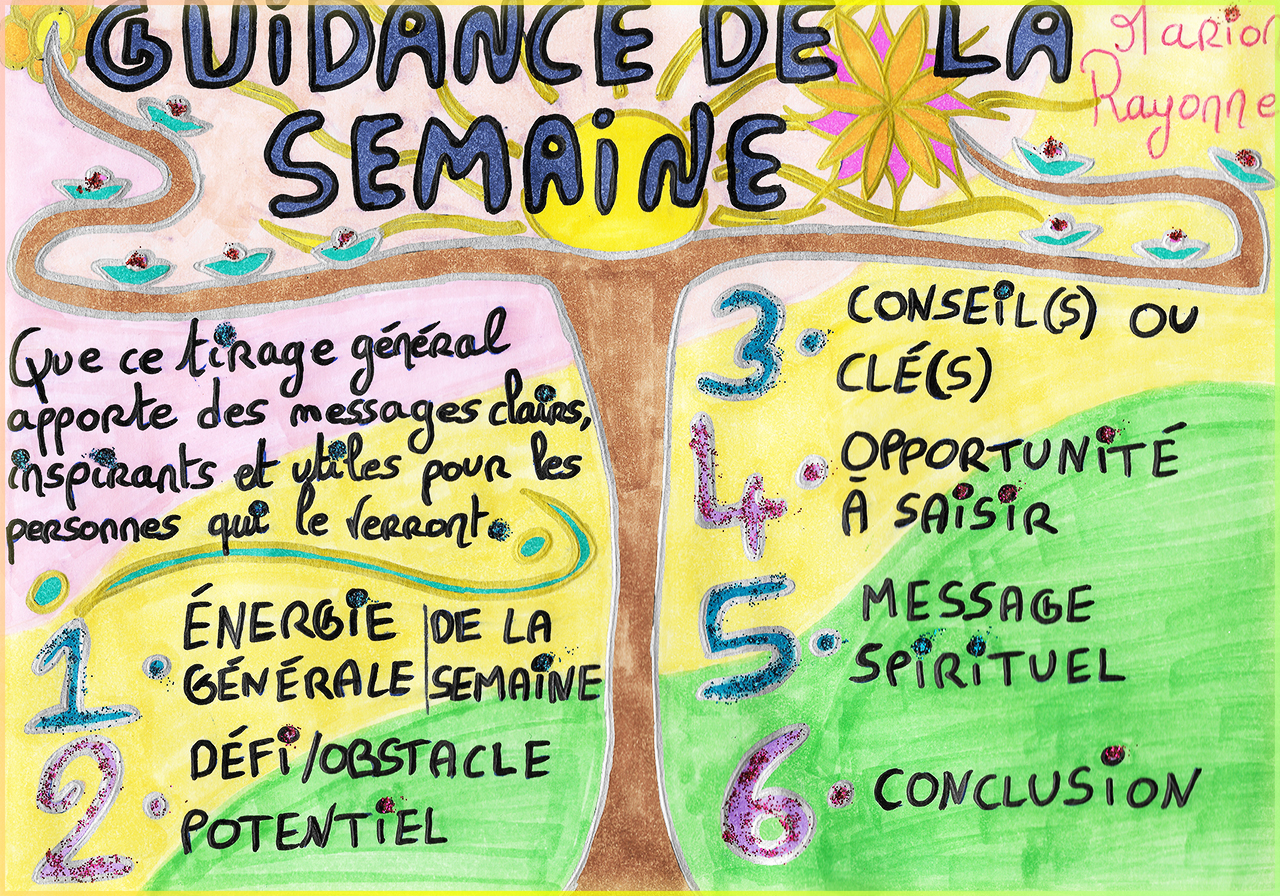 GUiDANCE DE LA
SEMAiNE
Marion
Rayonne
Que ce tirage général
apporte des messages clairs,
inspirants et utiles pour les
personnes qui le verront.
1. ÉNERGiE | DE LA
GÉNÉRALE | SEMAiNE
2. DÉFi/OBSTACLE
POTENTiEL
3. CONSEiL(S) OU
CLÉ(S)
4. OPPORTUNiTÉ
À SAiSiR
5. MESSAGE
SPiRiTUEL
6. CONCLUSiON